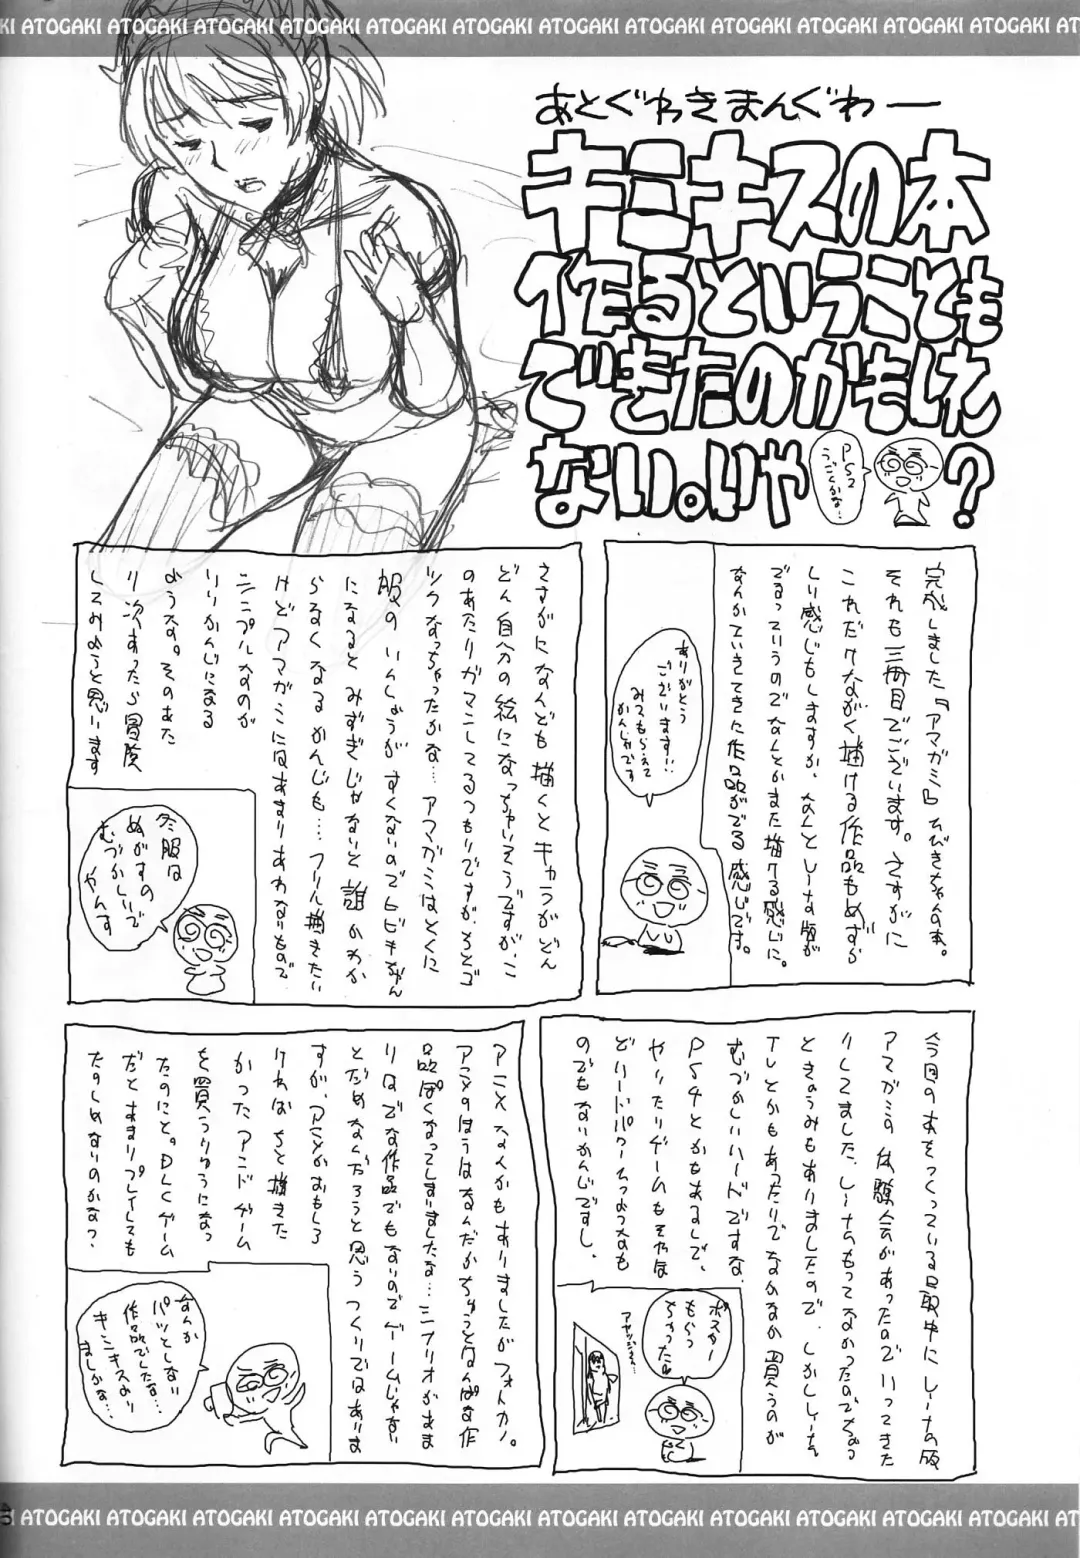 ATOGAKI ATOGAKI ATOGAKI ATOGAKI ATOGAKI ATOGAKI ATOGAKI ATOGAKI ATOGAKI ATOGAKI ATOGAKI
あとぐゎきまんぐわー
キミキスの本
作るということも
できたのかもしれ
ない。いや
?
PS2
うごくかな…
完成しました『アマガミ』ひびきちゃん本。
それも三冊目でございます。さすがに
これだけながく描ける作品もめずら
しい感じもしますが、なんとビータ版が
でるっていうのでなんとかまた描ける感じに。
なんかていきてきた作品がでる感じです。
ありがとう
ございます!!
みてもらえて
かんしゃです
さすがになんども描くとキャラがどん
どん自分の絵になっちゃいそうですが、こ
のあたりガマンしてるつもりですが、ちとゴ
ツクなっちゃったかな…アマガミはとくに
服のいんしょうがすくないのでヒビキちゃん
になるとみずぎじゃないと誰かわか
らなくなるかんじも…フリル描きたい
けどアマガミにはあまりあわないもので
シンプルなのが
いいかんじになる
ような。そのあた
り次あったら冒険
してみようと思います
冬服は
ぬがすの
むづかしいで
やんす
今回の本をつくっている最中にビータの版
アマガミの体験会があったのでいってきた
りしてました、ビータのもってなかったのでちょっ
ときょうみもありましたので、しかしビータ
TVとかもあったりでなかなか買うのが
むづかしいハードですな
PS4とかもあるしで、
やりたいゲームもそやほ
どハードパワーつかうのも
のでもないかんじですし、
ポスター
もらっ
ちゃったw
アヤツジさん…
アニメなんかもありましたがフォトカノ。
アニメのほうはなんだかちゅうとはんぱな作
品ぽくなってしまいましたな…シナリオがあま
りよくでな作品でもないのでゲームじゃない
とだめなんだろうと思うつくりではありま
すが、アニメがおもしろ
ければちと描きた
かったアンドゲーム
を買うりゆうになっ
たのにと。DLCゲーム
だとあまりプレイしても
たのしめないのかな?
なんか
パッとしない
作品でしたな…
キミキスより
ましかな…
ATOGAKI ATOGAKI ATOGAKI ATOGAKI ATOGAKI ATOGAKI ATOGAKI ATOGAKI ATOGAKI ATOGAKI ATOGAKI